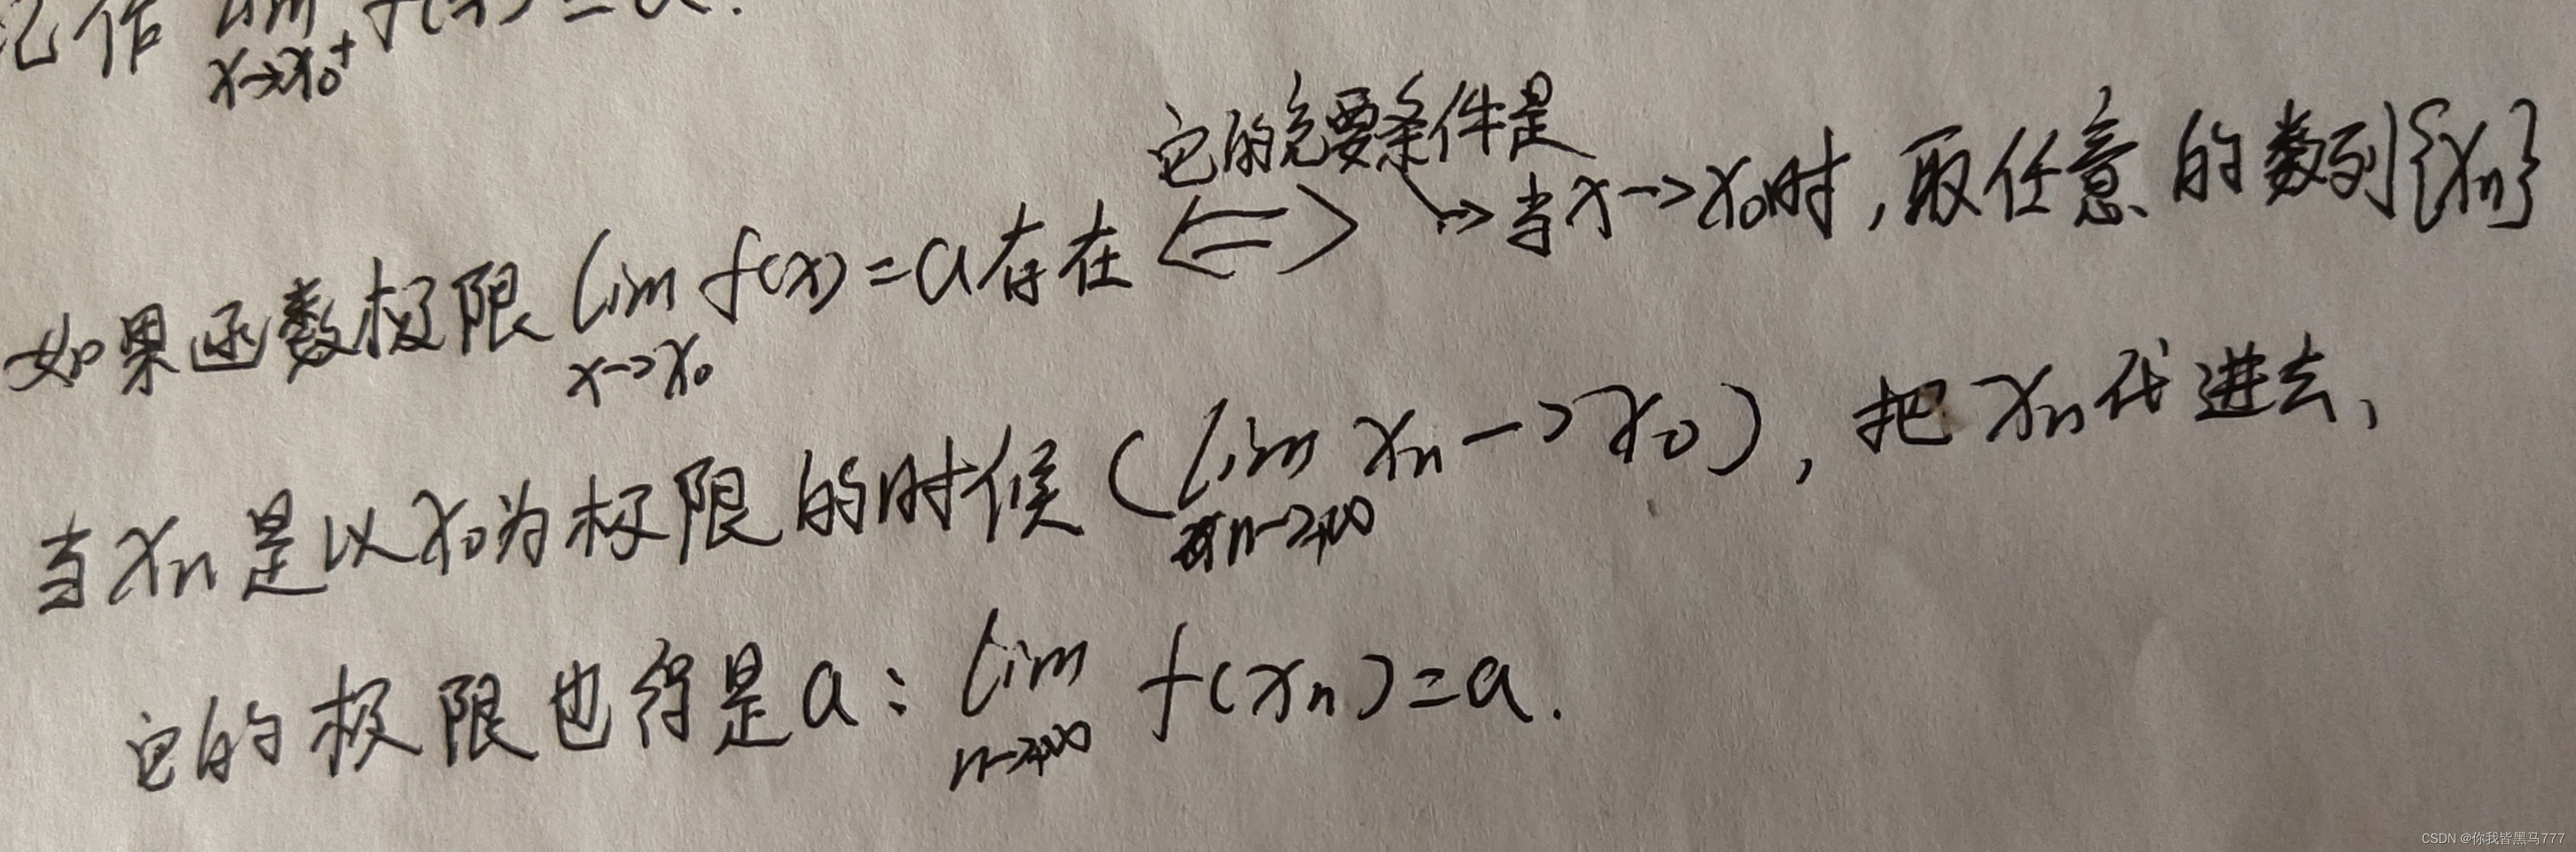 记作 lim f(x)=a.
x→x₀⁺
它的充要条件是
如果函数极限 lim f(x)=a存在 <=> → 当x→x₀时,取任意的数列{xₙ}
x→x₀
当xₙ是以x₀为极限的时候(lim xₙ→x₀),把xₙ代进去,
n→+∞
它的极限也得是a: lim f(xₙ)=a.
n→+∞
CSDN @你我皆黑马777